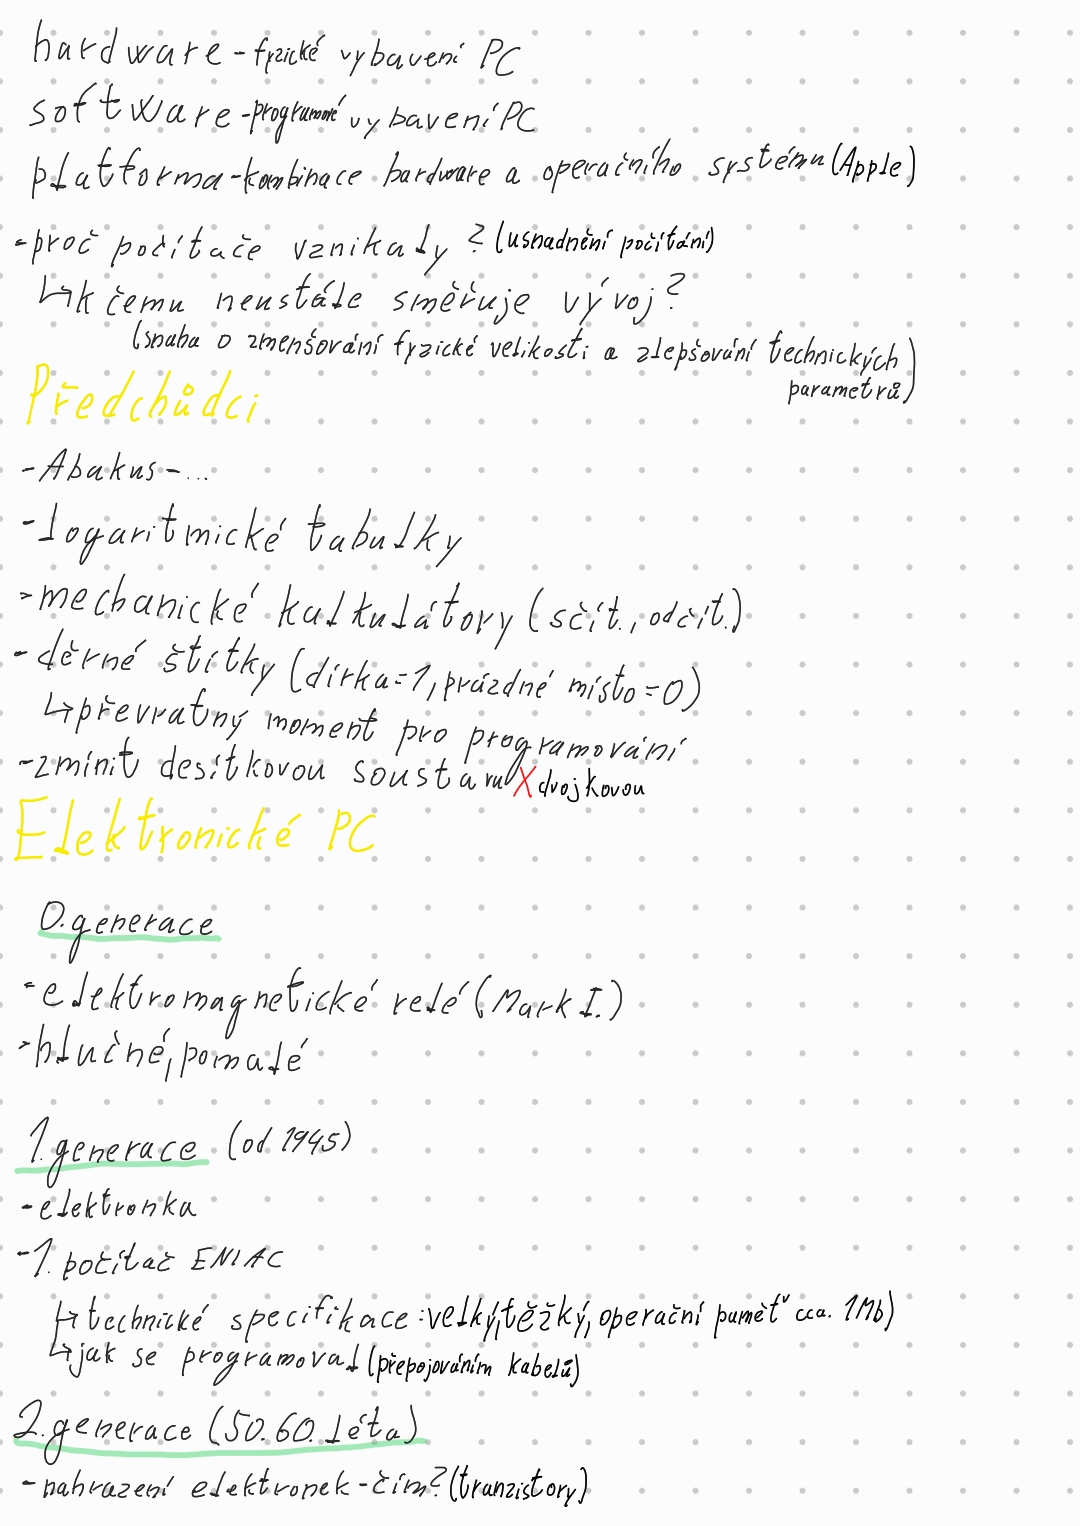 hardware - fyzické vybavení PC
software - programové vybavení PC
platforma - kombinace hardware a operačního systému (Apple)
- proč počítače vznikaly? (usnadnění počítání)
↳ k čemu neustále směřuje vývoj?
(snaha o zmenšování fyzické velikosti a zlepšování technických
parametrů)
Předchůdci
- Abakus - ...
- logaritmické tabulky
- mechanické kalkulátory (sčít., odčít.)
- děrné štítky (dírka=1, prázdné místo=0)
↳ převratný moment pro programování
- zmínit desítkovou soustavu X dvojkovou
Elektronické PC
0. generace
- elektromagnetické relé (Mark I.)
- hlučné, pomalé
1. generace (od 1945)
- elektronka
- 1. počítač ENIAC
↳ technické specifikace: velký, těžký, operační paměť cca. 1Mb)
↳ jak se programoval (přepojováním kabelů)
2. generace (50. 60. léta)
- nahrazení elektronek - čím? (tranzistory)